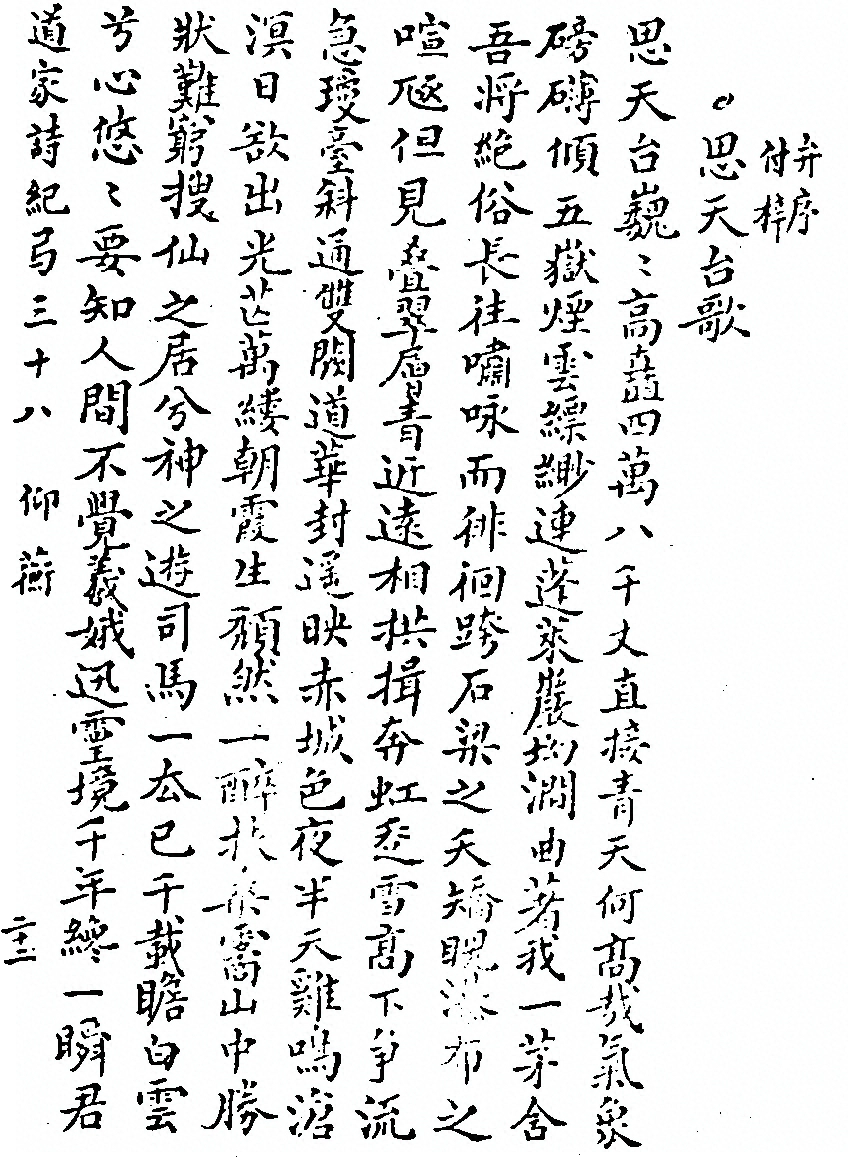 弁序
付梓
思天台歌
思天台巍〻高矗四萬八千丈直接青天何髙哉氣象
磅礴傾五嶽煙雲縹緲連蓬萊巖坳澗曲著我一茅舍
吾將絶俗長往嘯咏而徘徊跨石梁之夭矯睨瀑布之
喧豗但見疊翠層青近遠相拱揖奔虹歕雪髙下爭流
急瓊臺斜通雙闕道華封遥映赤城色夜半天雞鳴滄
溟日欲出光芒萬縷朝霞生頽然一醉扶桑窩山中勝
狀難窮搜仙之居兮神之遊司馬一去已千載瞻白雲
兮心悠〻要知人間不覺羲娥迅靈境千年纔一瞬君
道家詩紀弓三十八 仰蘅 二十二